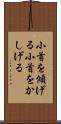 小首を傾げ
る小首をか
しげる